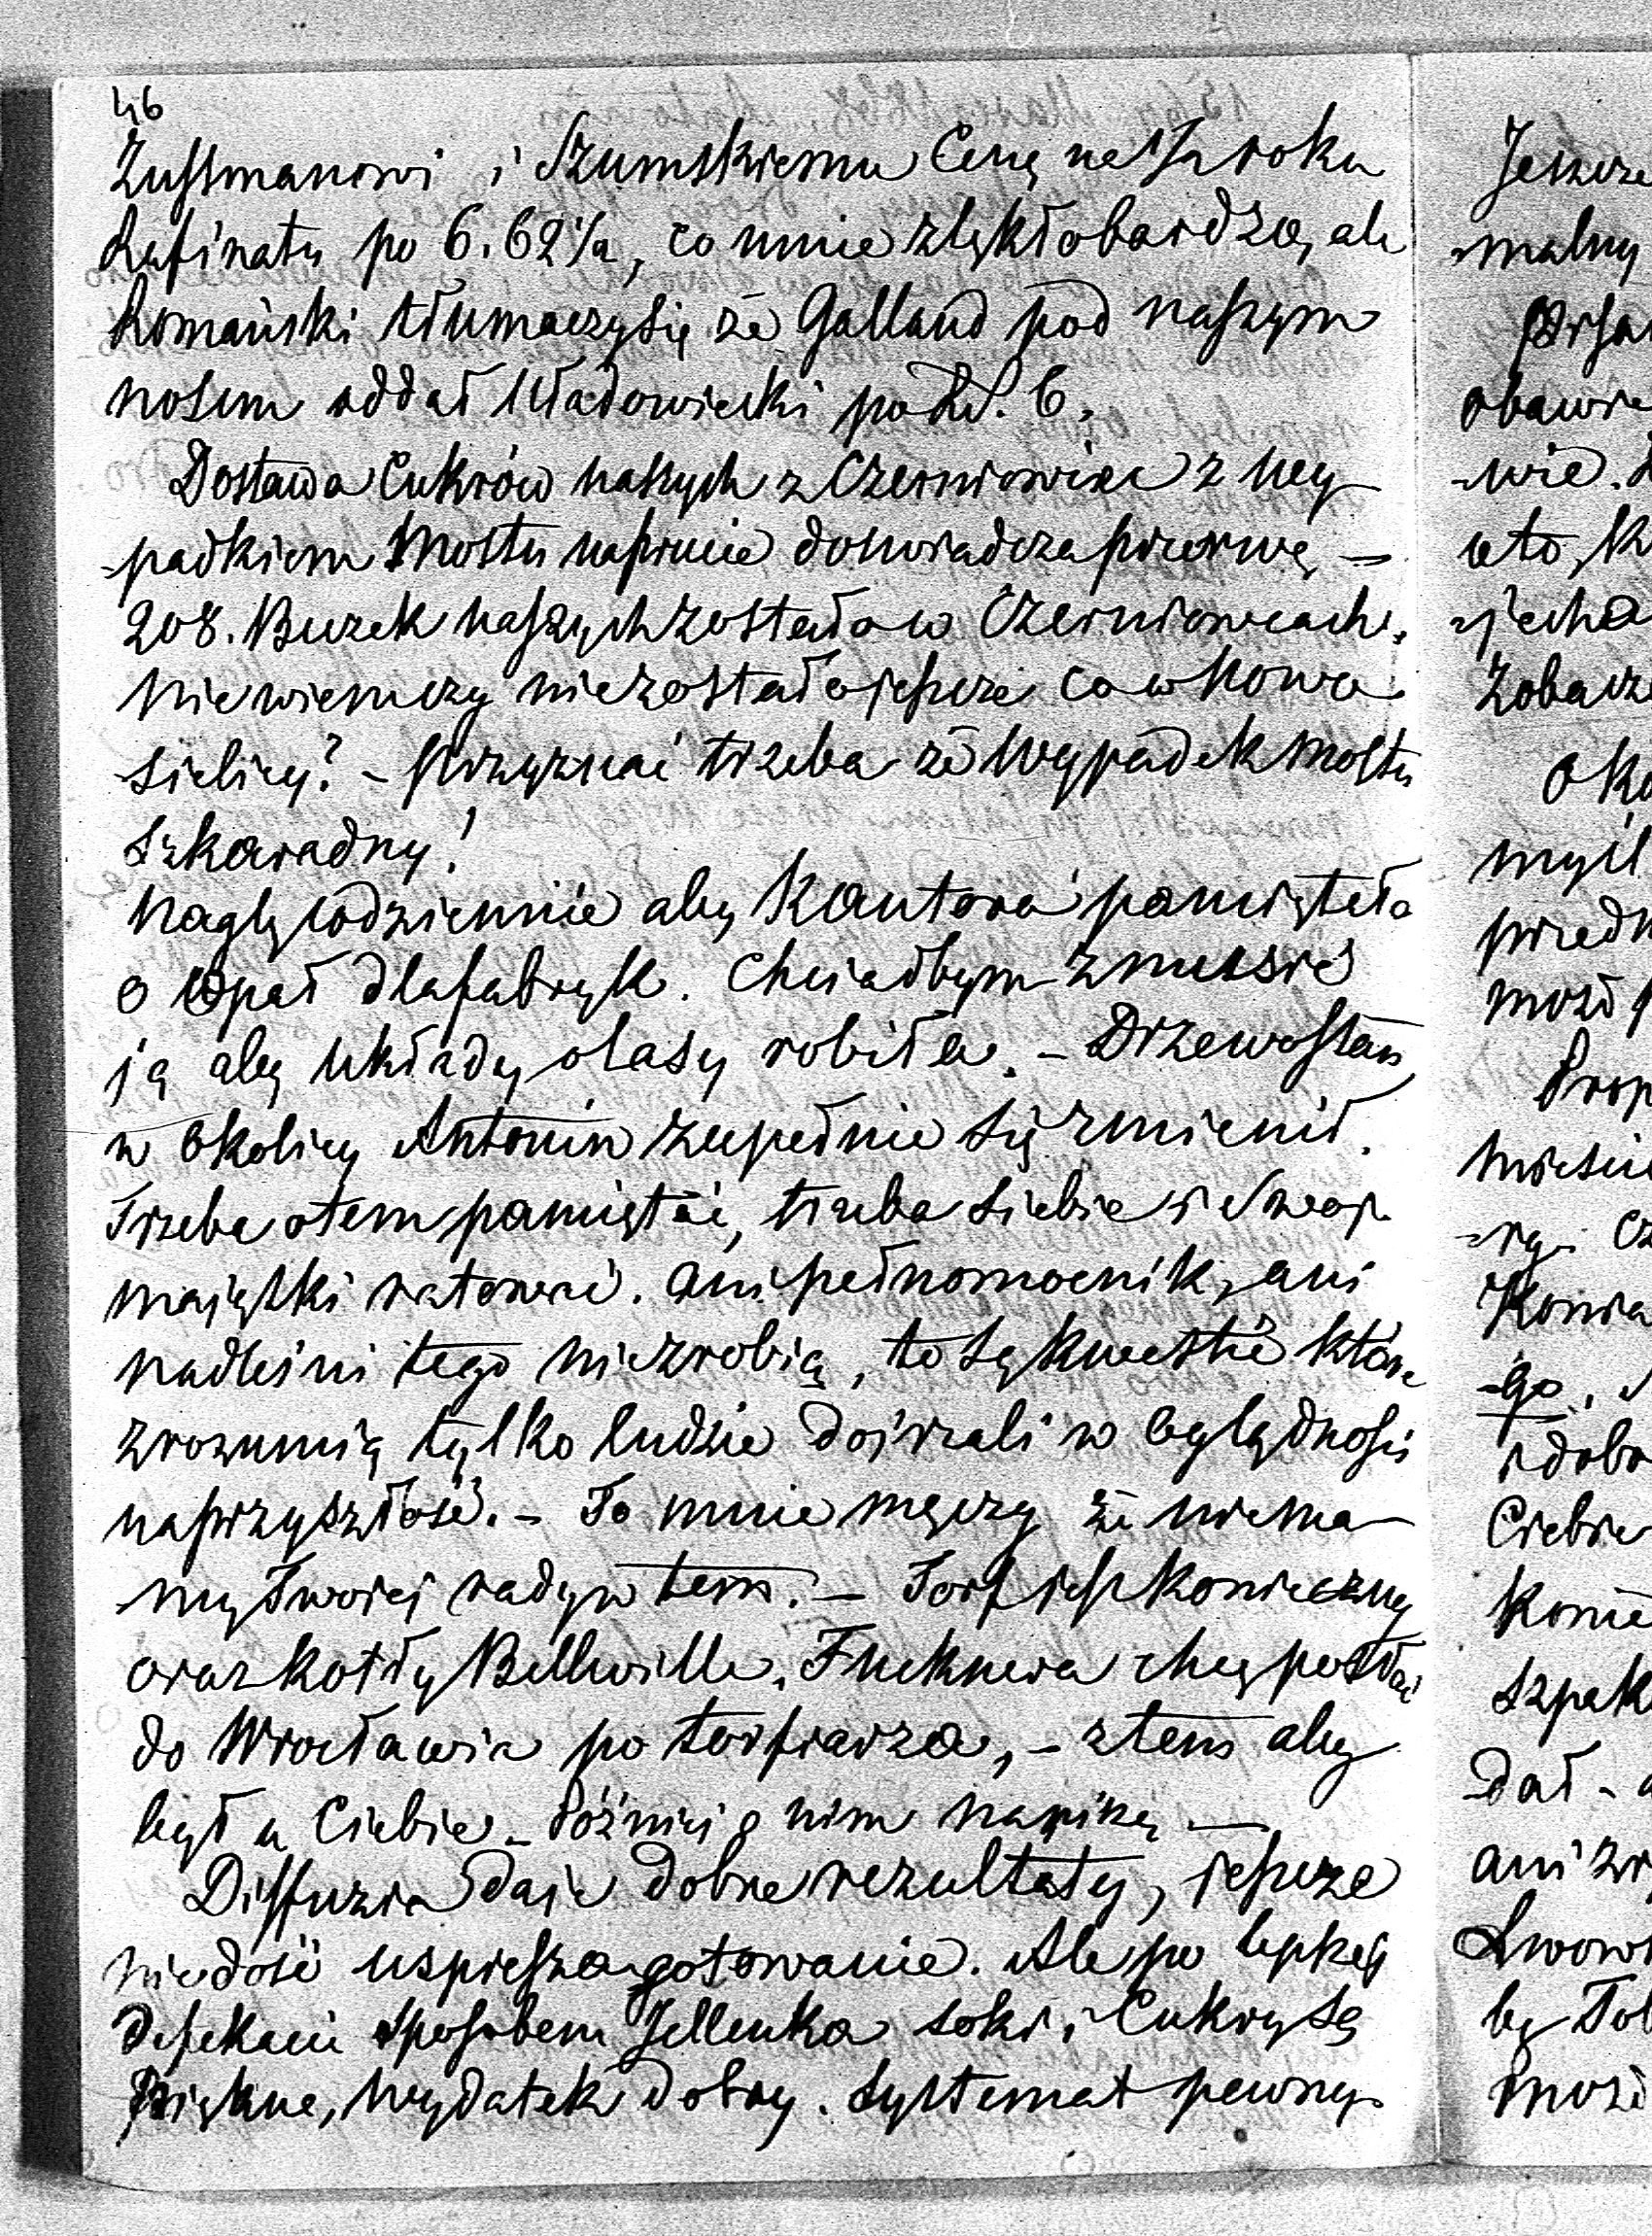 46
Zussmanowi i Szumskiemu Cenę na ½ roku
Rafinatu po 6.62½, co mnie zlękło bardzo, ale
Romański tłumaczy się że Galland pod naszym
nosem oddał Władowiecki po R.S. 6.
Dostawa Cukrów naszych z Czerniowiec z wy
-padkiem Mostu na Prucie doświadcza przerwę –
208. Buzek naszych zostało w Czerniowcach.
Nie wiem czy nie zostało jeszcze co w Nowo
sielicy? – Przyznać trzeba że Wypadek Mostu
szkaradny!
Naglę codziennie aby Kantora pamiętała
o Opał dla fabryk. Chciałbym zmusić
ją aby układy o lasy robiła. – Drzewostan
w okolicy Antonin zupełnie się zmienił.
Trzeba o tem pamiętać, trzeba siebie i Swoje
majątki ratować. Ani pełnomocnik, ani
nadleśni tego nie zrobią, to są kwestie które
zrozumią tylko ludzie dojrzali w oględności
na przyszłość. – To mnie męczy że nie ma
-my Twojej rady w tem. – Torf jest konieczny
oraz kotły Bellwille. Fuknera chcę posłać
do Wrocławia po torfiarza, – z tem aby
był u Ciebie – Później o nim napiszę —
Diffuzia daje dobre rezultaty, jeszcze
nie dość uspiesza gotowanie. Ale po lepszej
defekacii sposobem Jellenka soki i Cukry są
Piękne, wydatek dobry. Systemat pewny
Jeszcze
-malny
obawie
-wie.
oto, k
-jecha
Zobacz
myśl
przed
Konie
-go.
Ciebie
konie
szpak
dał –
ani
Lwow
by